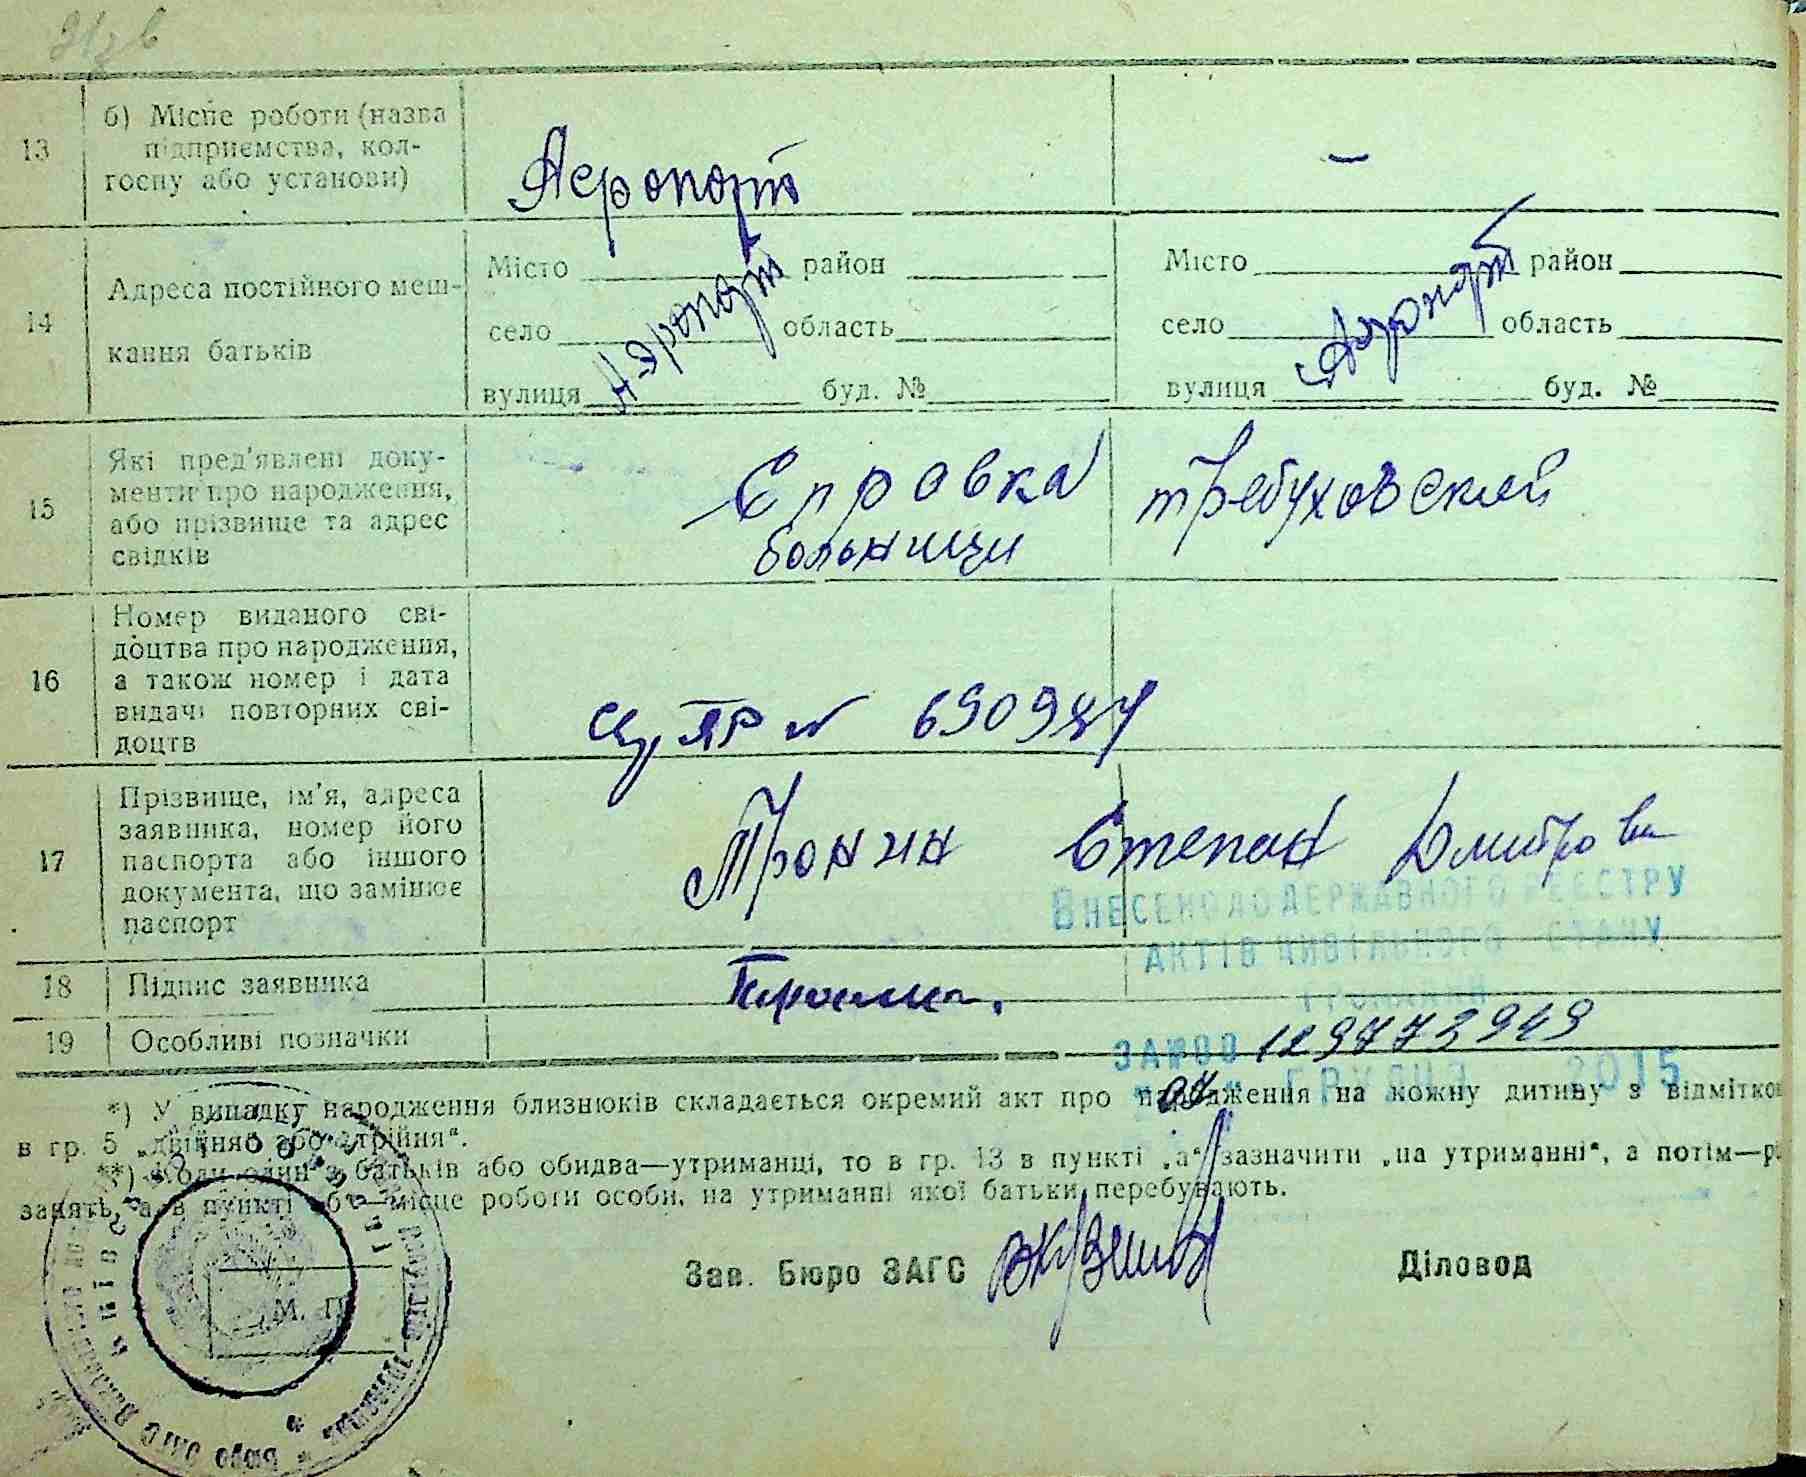 13
б) Місце роботи (назва
підприємства, кол-
госпу або установи)
Аеропорт
—
14
Адреса постійного меш-
кання батьків
Місто район
село область
вулиця буд. №
Аэропорт
Місто район
село область
вулиця буд. №
Аэропорт
15
Які пред'явлені доку-
менти про народження,
або прізвище та адрес
свідків
Справка Требуховской
больници
16
Номер виданого сві-
доцтва про народження,
а також номер і дата
видачі повторних сві-
доцтв
ЯР №
17
Прізвище, ім'я, адреса
заявника, номер його
паспорта або іншого
документа, що замінює
паспорт
Пронин Степан Дмитрови
ВНЕСЕНО ДО ДЕРЖАВНОГО РЕЄСТРУ
АКТІВ ЦИВІЛЬНОГО СТАНУ
ГРОМАДЯН
18
Підпис заявника
19
Особливі позначки
ЗА №00 129773949
07 ГРУДНЯ 2015
*) У випадку народження близнюків складається окремий акт про народження на кожну дитину з відмітко
в гр. 5 „двійня“ або „трійня“.
**) Коли один з батьків або обидва—утриманці, то в гр. 13 в пункті „а“ зазначити „на утриманні“, а потім—р
занять, а в пункті „б“—місце роботи особи, на утриманні якої батьки перебувають.
Зав. Бюро ЗАГС
Діловод
М. П.